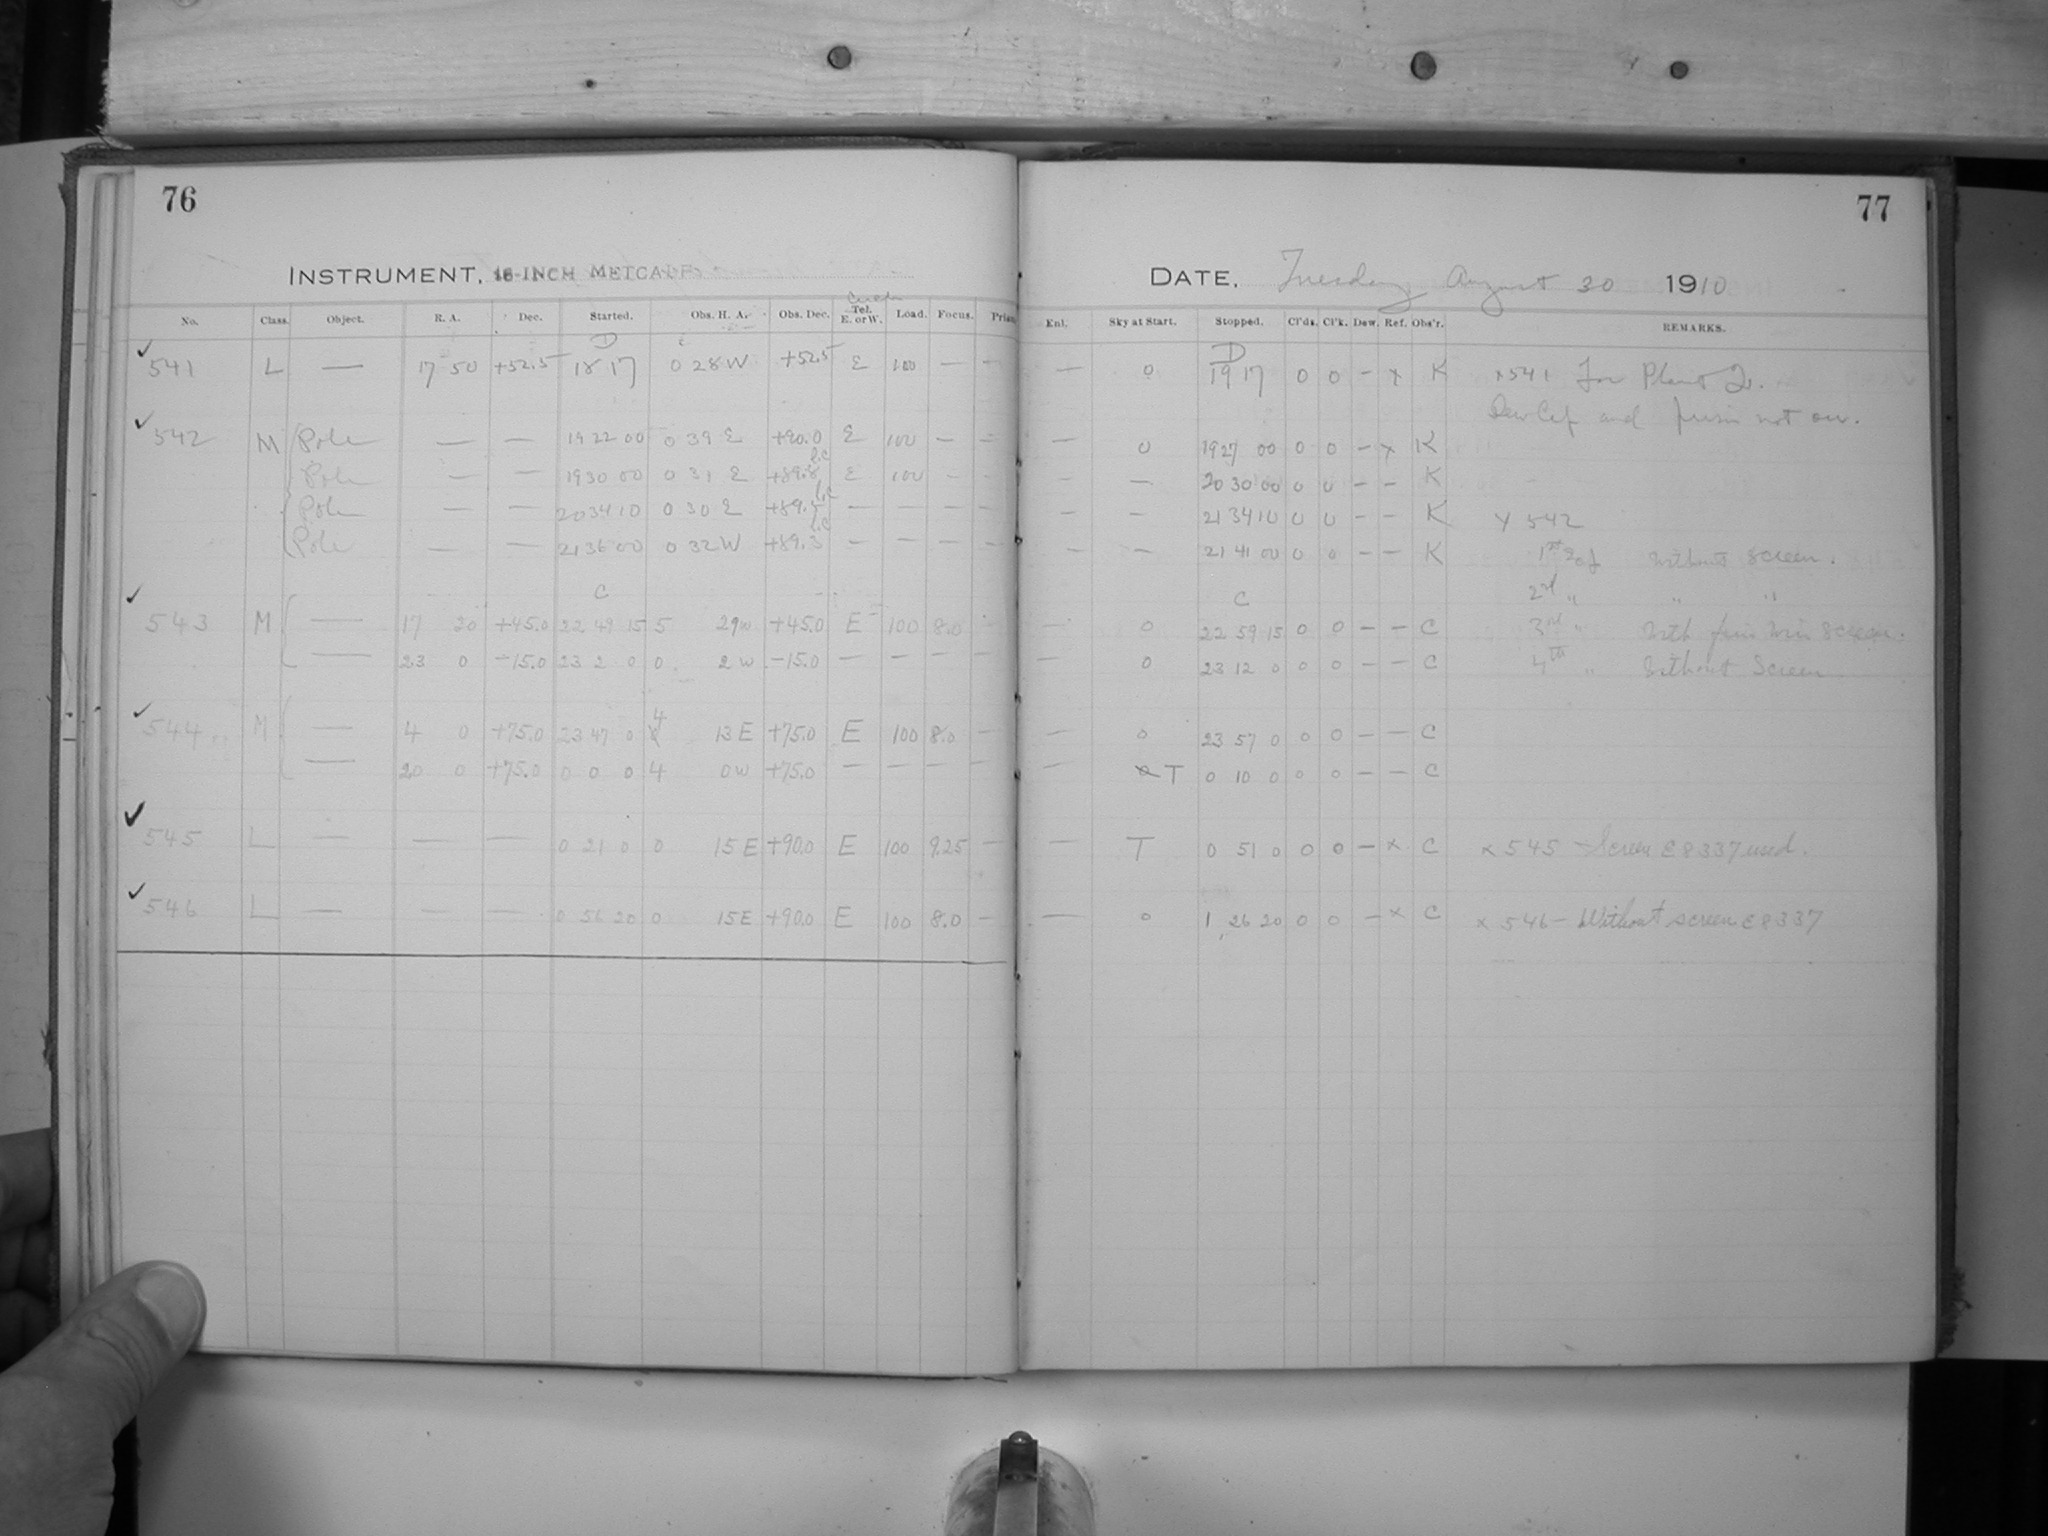 76
INSTRUMENT, 16-INCH METCALF.
No. Class. Object. R. A. Dec. Started. Obs. H. A. Obs. Dec. Tel. E. or W. Load. Focus. Pris
D
✓541 L — 17 50 +52.5 18 17 0 28 W +52.5 E 100 — —
✓542 M Pole — — 19 22 00 0 39 E +90.0 E 100 — —
Pole — — 19 30 00 0 31 E +89.8 E 100 — —
Pole — — 20 34 10 0 30 E — — — —
Pole — — 21 36 00 0 32 W +89.3 — — — —
C
✓543 M — 17 20 +45.0 22 49 15 5 29 W +45.0 E 100 8.0
— 23 0 -15.0 23 2 0 0 2 W -15.0 — — — —
✓544 M — 4 0 +75.0 23 47 0 4 13 E +75.0 E 100 8.0 —
— 20 0 +75.0 0 0 0 4 0 W +75.0 — — — —
✓545 L — — — 0 21 0 0 15 E +90.0 E 100 9.25 —
✓546 L — — — 0 56 20 0 15 E +90.0 E 100 8.0 —
77
DATE, Tuesday August 30 1910
Enl. Sky at Start. Stopped. Cl'ds. Cl'k. Dew. Ref. Obs'r. REMARKS.
D
— 0 19 17 0 0 — x K x 541 For
and prism not on.
— 0 19 27 00 0 0 — x K
— — 20 30 00 0 0 — — K
— — 21 34 10 0 0 — — K x 542
— — 21 41 00 0 0 — — K 1st Without screen.
C 2nd " " "
— 0 22 59 15 0 0 — — C 3rd " With screen.
— 0 23 12 0 0 0 — — C 4th " Without Screen
— 0 23 57 0 0 0 — — C
— T 0 10 0 0 0 — — C
— T 0 51 0 0 0 — x C x 545 — Screen E8337 used.
— 0 1 26 20 0 0 — x C x 546 — Without screen E8337